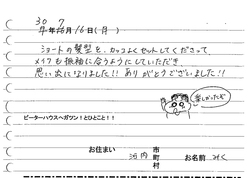 30 7
年 月16日(月)
ショートの髪型を、カッコよくセットしてくださって、
メイクも振袖に合うようにしていただき
思い出になりました!! ありがとうございました!!
楽しかったぞ
ピーターハウスヘガワン!とひとこと!!
お住まい 河内 市町村 お名前 みく